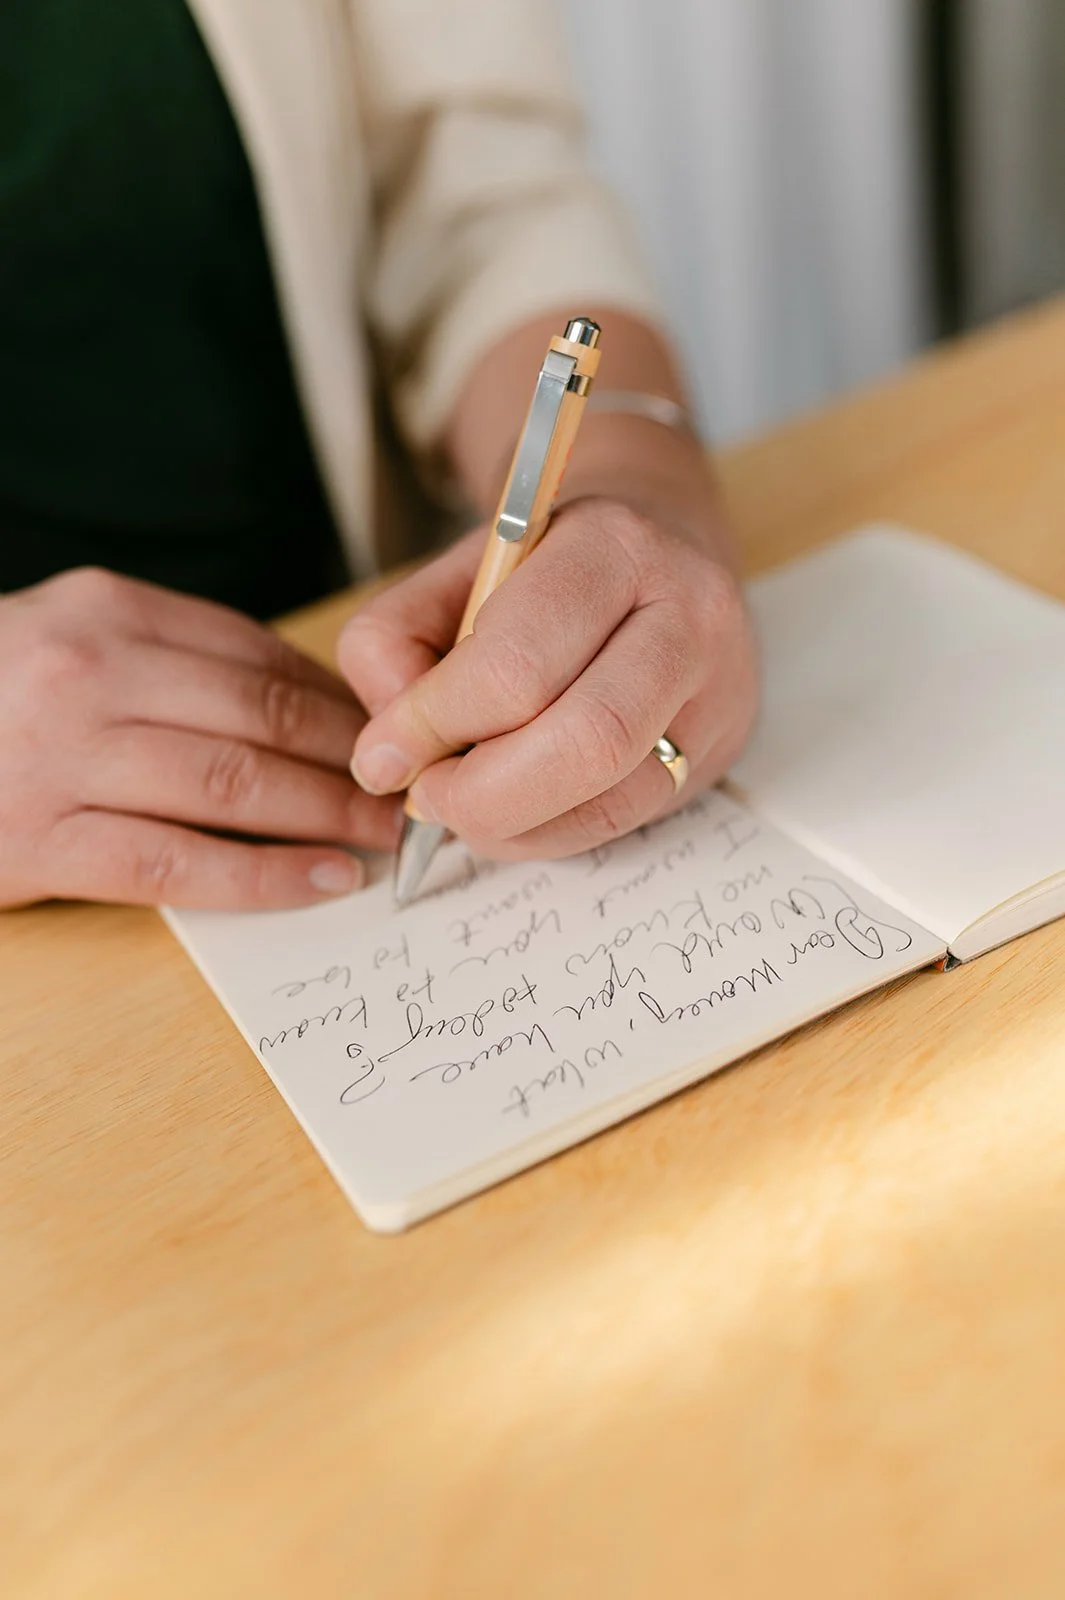 Dear money, what
would you have
me know today?
I want you to know
that I want to be
open